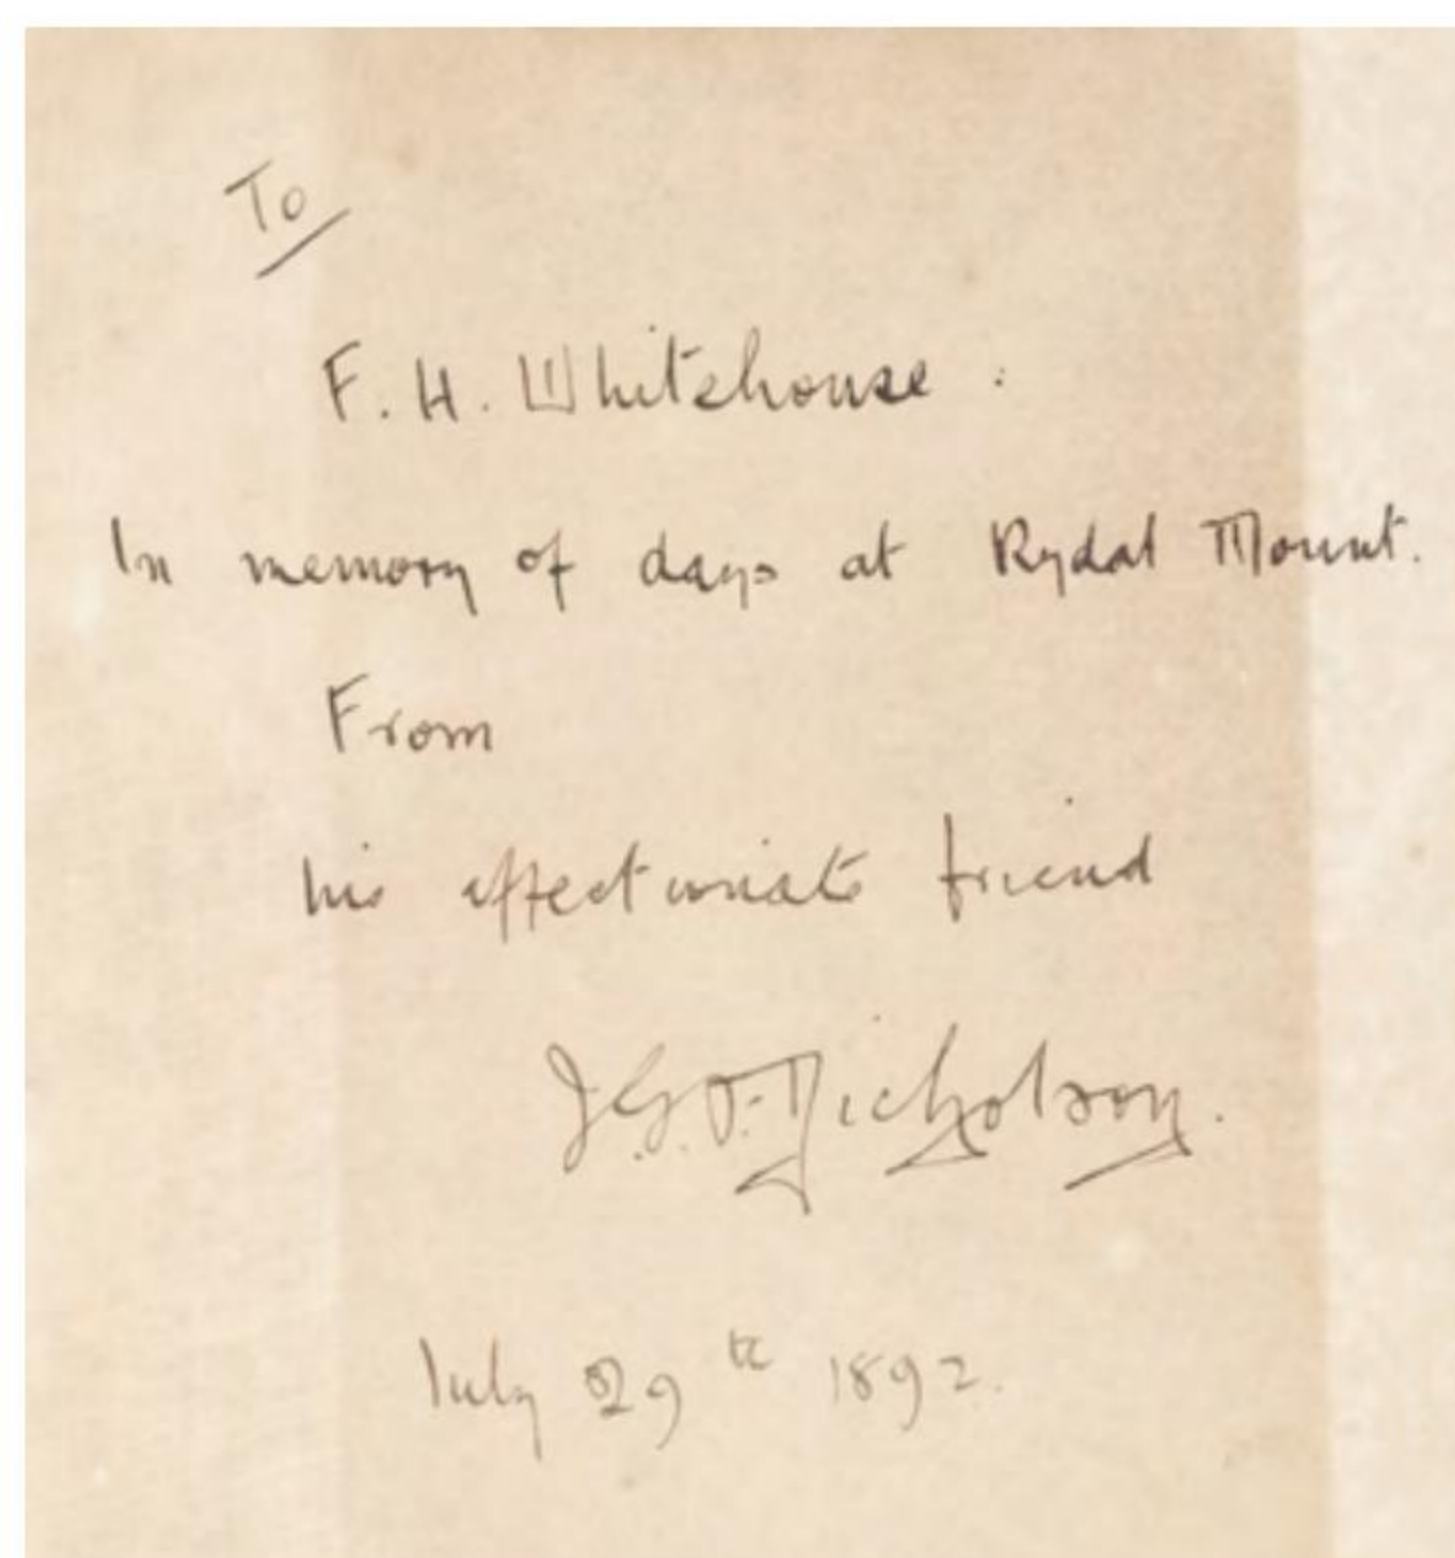 To
F. H. Whitehouse .
In memory of days at Rydal Mount.
From
his affectionate friend
J.G.F. Nicholson.
July 29th 1892.